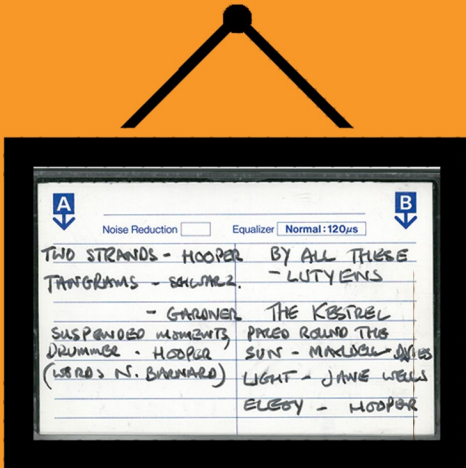 A
B
Noise Reduction Equalizer Normal:120µs
TWO STRANDS - HOOPER
TANGRAMS - SCHWARZ.
- GARDNER
SUSPENDED MOMENTS,
DRUMMER - HOOPER
(WORDS N. BARNARD)
BY ALL THESE
- LUTYENS
THE KESTREL
PACED ROUND THE
SUN - MAXWELL DAVIES
LIGHT - JANE WELLS
ELEGY - HOOPER